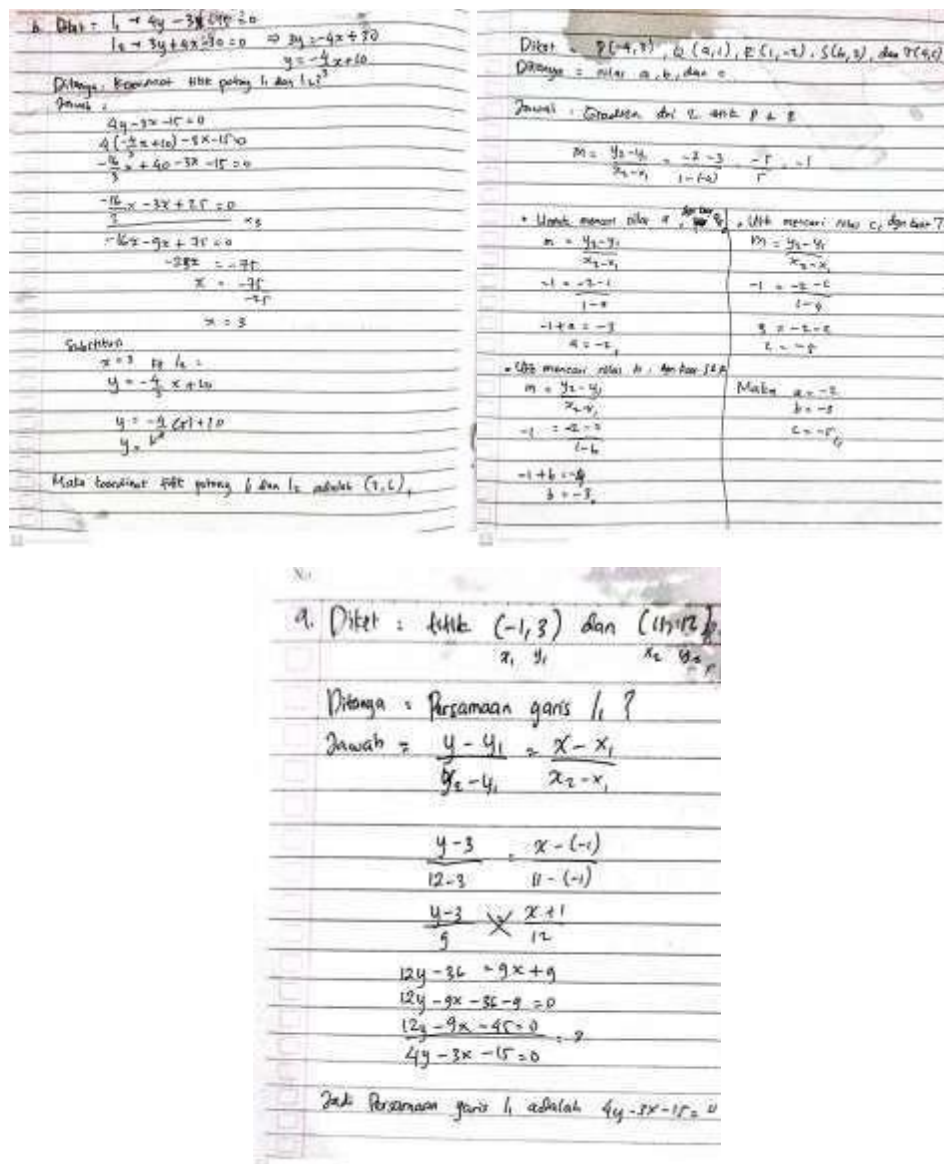 b. Diket : l₁ → 4y - 3x - 15 = 0
l₂ → 3y + 4x - 30 = 0 ⇒ 3y = -4x + 30
y = -4/3 x + 10
Ditanya : Koordinat titik potong l₁ dan l₂?
Jawab :
4y - 3x - 15 = 0
4(-4/3 x + 10) - 3x - 15 = 0
-16/3 x + 40 - 3x - 15 = 0
-16/3 x - 3x + 25 = 0
x3
-16x - 9x + 75 = 0
-25x = -75
x = -75/-25
x = 3
Substitusi
x = 3 ke l₂ :
y = -4/3 x + 10
y = -4/3 (3) + 10
y = 6
Maka koordinat titik potong l₁ dan l₂ adalah (3, 6)
Diket = P(-4,3), Q(a,1), R(1,-2), S(b,2), dan T(4,c)
Ditanya = nilai a, b, dan c
Jawab : Gradien dari titik P & R
m = y₂-y₁/x₂-x₁ = -2-3/1-(-4) = -5/5 = -1
• Untuk mencari nilai a,
m = y₂-y₁/x₂-x₁
-1 = -2-1/1-a
-1+a = -3
a = -2
• Utk mencari nilai b, dgn titik S & R
m = y₂-y₁/x₂-x₁
-1 = -2-2/1-b
-1+b = -4
b = -3
• Utk mencari nilai c, dgn titik T
m = y₂-y₁/x₂-x₁
-1 = -2-c/1-4
3 = -2-c
c = -5
Maka a = -2
b = -3
c = -5
No.
a. Diket : titik (-1,3) dan (11,12)
x₁ y₁ x₂ y₂
Ditanya = Persamaan garis l₁ ?
Jawab = y - y₁/y₂ - y₁ = x - x₁/x₂ - x₁
y - 3/12 - 3 = x - (-1)/11 - (-1)
y - 3/9 = x + 1/12
12y - 36 = 9x + 9
12y - 9x - 36 - 9 = 0
12y - 9x - 45 = 0
÷ 3
4y - 3x - 15 = 0
Jadi Persamaan garis l₁ adalah 4y - 3x - 15 = 0